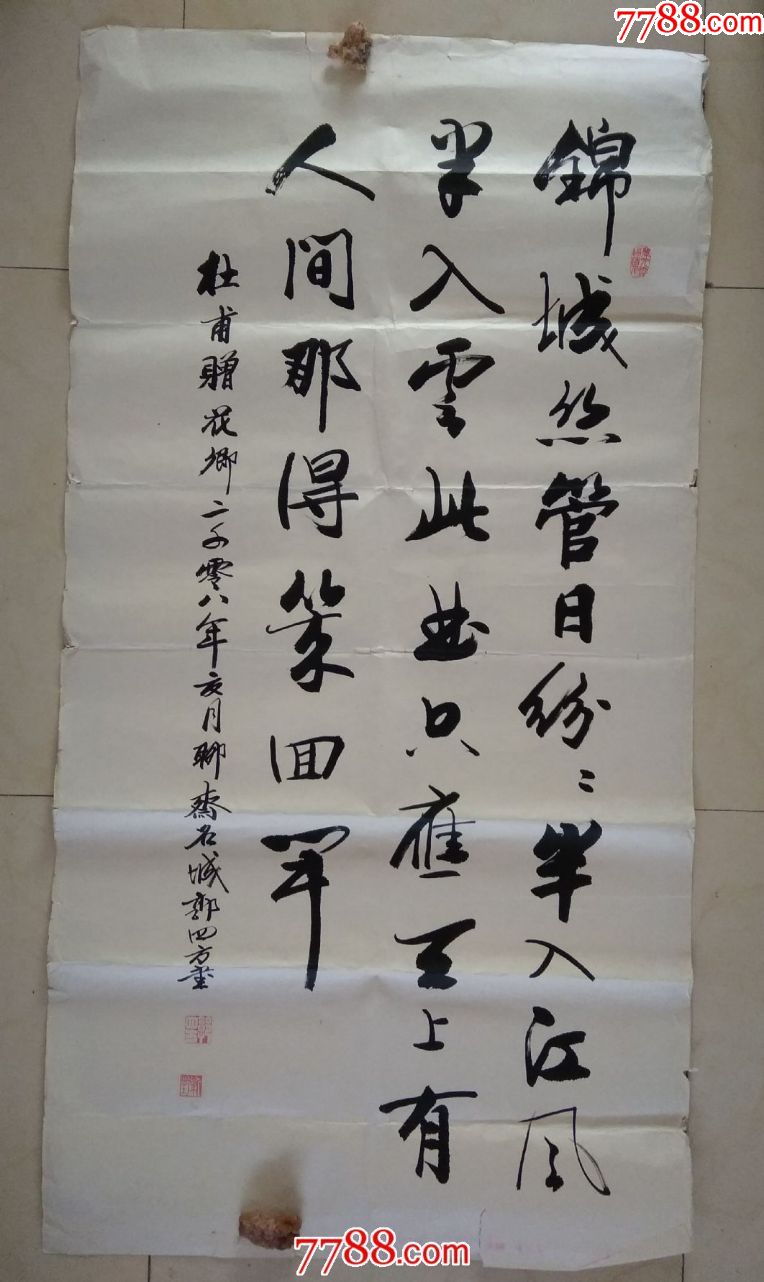 7788.com
錦城絲管日紛〻半入江風
半入雲此曲只應天上有
人間那得幾回聞
杜甫贈花卿二千零八年亥月聊齋名城郭四方書
7788.com